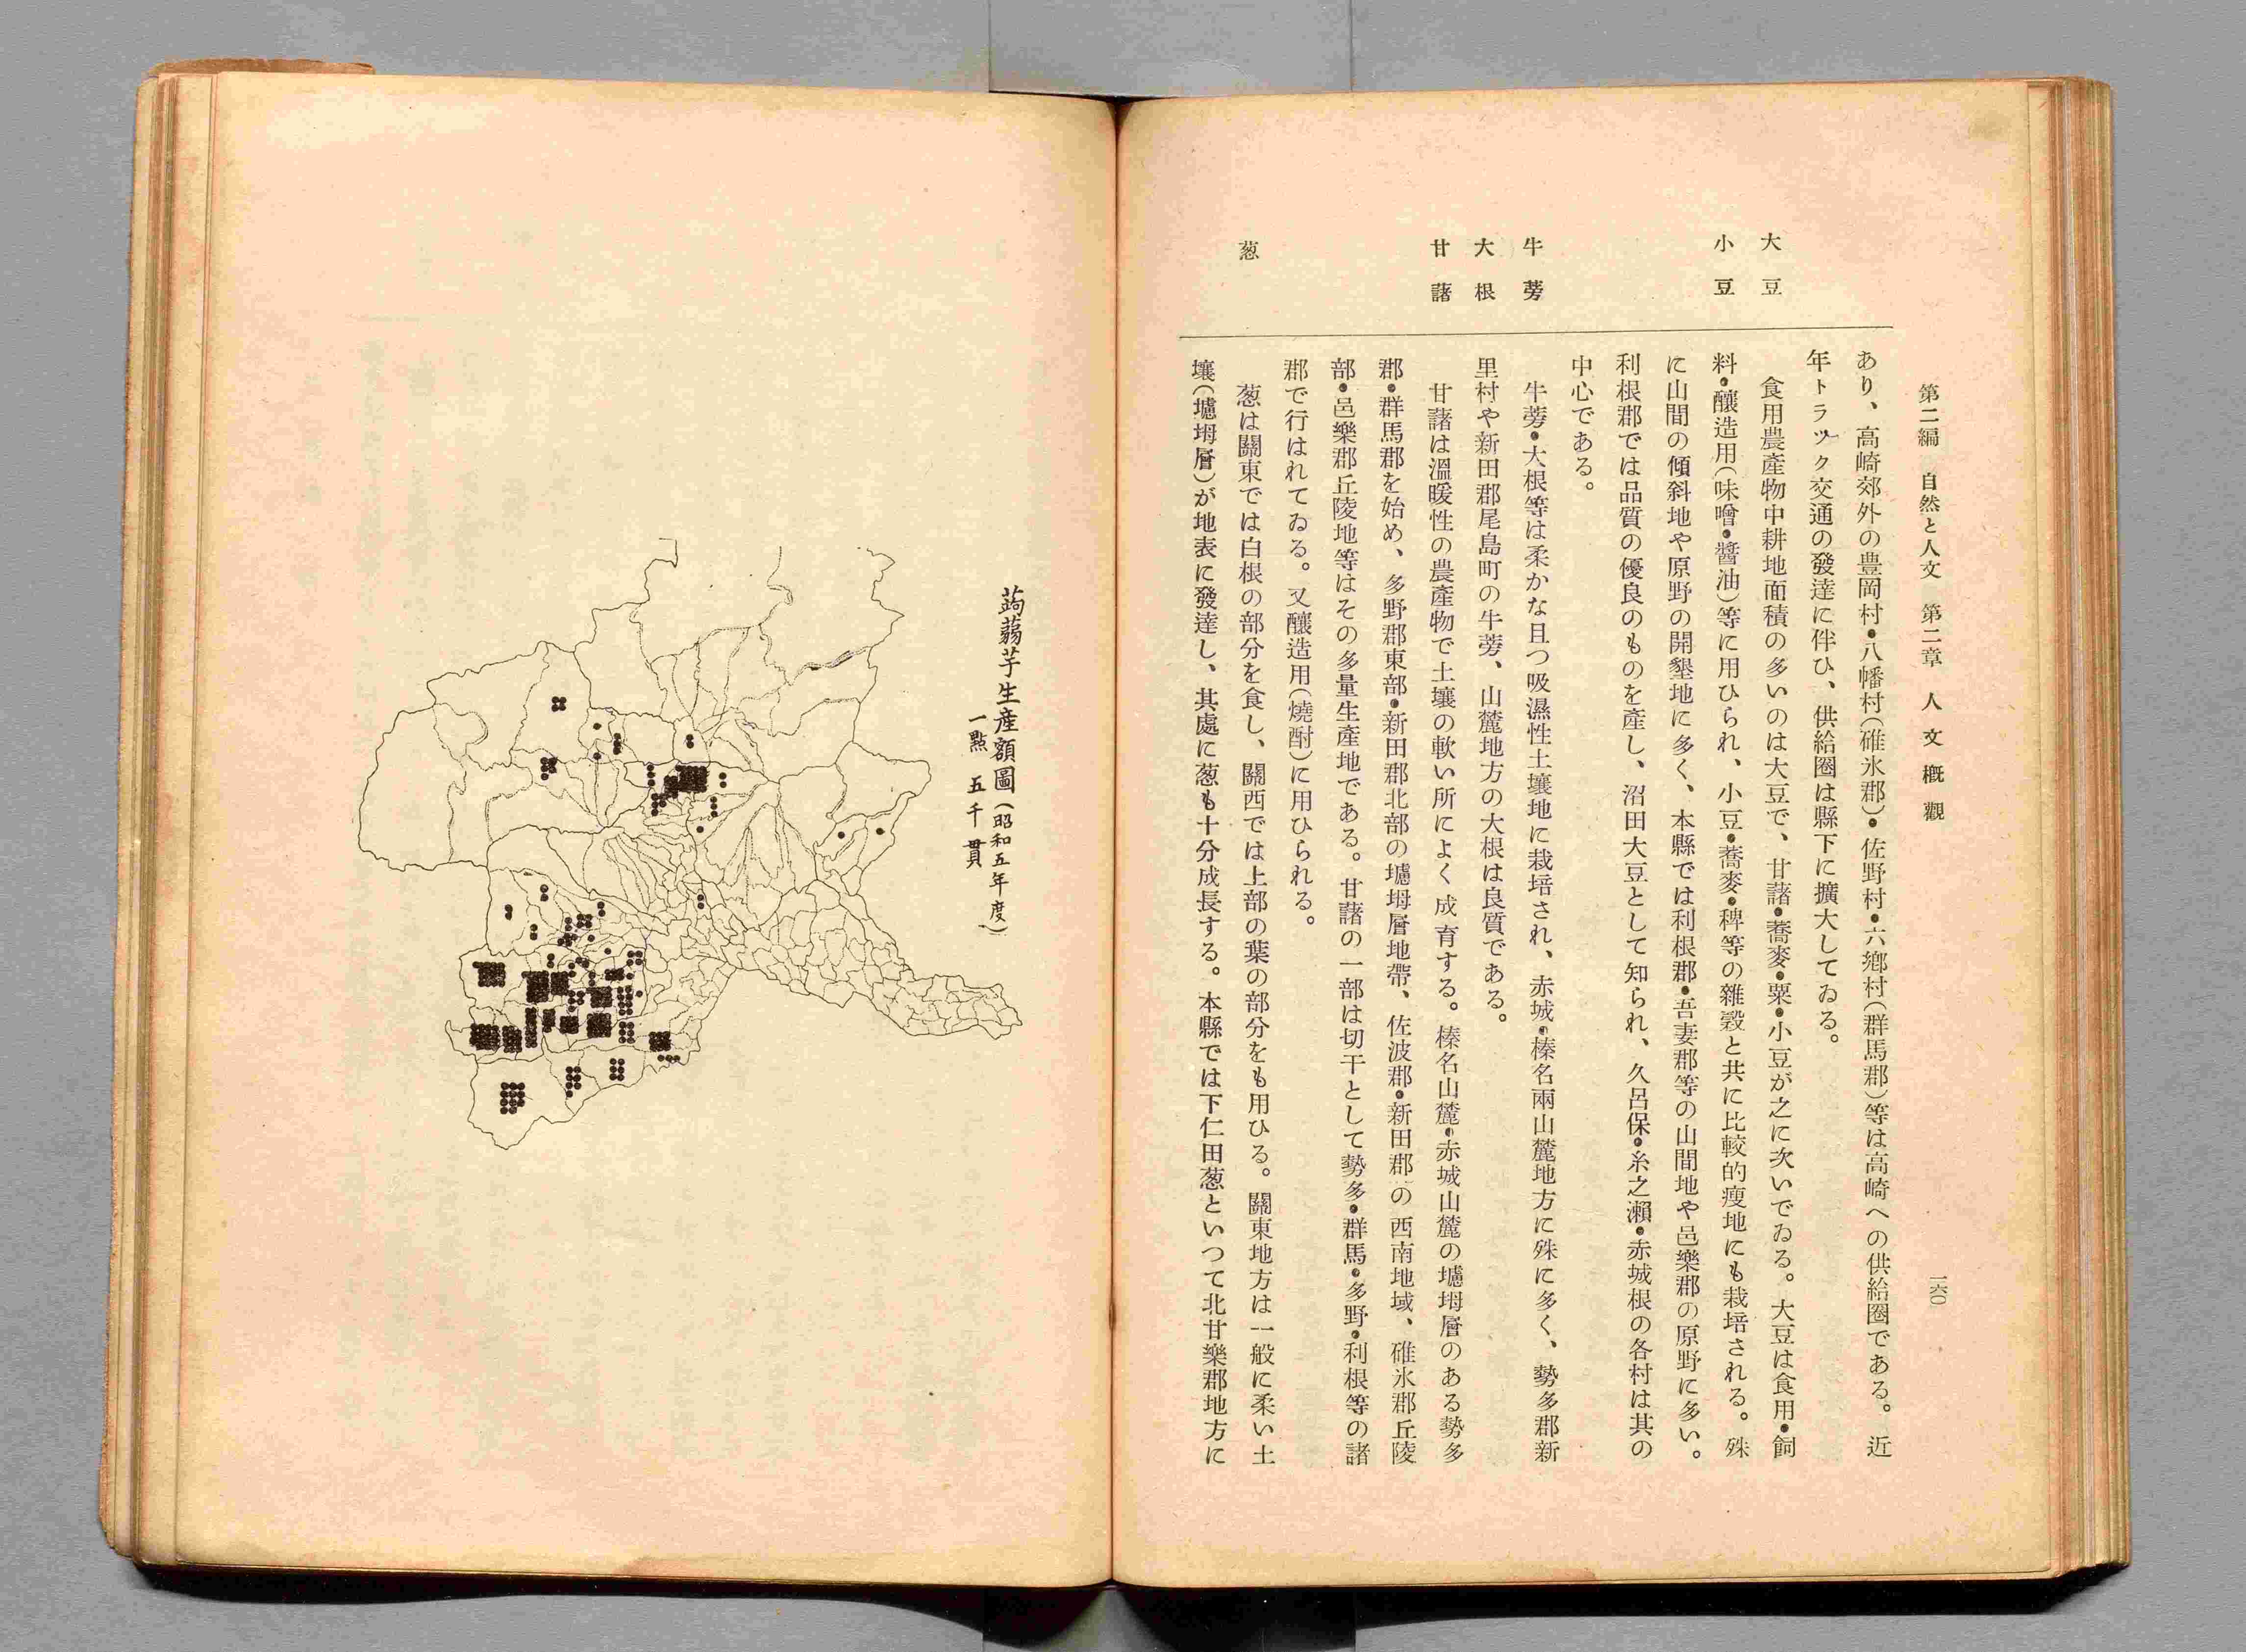 第二編　自然と人文　第二章　人文概觀
一六〇
大豆
小豆
牛蒡
大根
甘藷
葱
あり、高崎郊外の豊岡村・八幡村(碓氷郡)・佐野村・六鄕村(群馬郡)等は高崎への供給圏である。近
年トラック交通の發達に伴ひ、供給圏は縣下に擴大してゐる。
食用農產物中耕地面積の多いのは大豆で、甘藷・蕎麥・粟・小豆が之に次いでゐる。大豆は食用・飼
料・釀造用(味噌・醬油)等に用ひられ、小豆・蕎麥・稗等の雜穀と共に比較的瘦地にも栽培される。殊
に山間の傾斜地や原野の開墾地に多く、本縣では利根郡・吾妻郡等の山間地や邑樂郡の原野に多い。
利根郡では品質の優良のものを產し、沼田大豆として知られ、久呂保・糸之瀨・赤城根の各村は其の
中心である。
牛蒡・大根等は柔かな且つ吸濕性土壤地に栽培され、赤城・榛名兩山麓地方に殊に多く、勢多郡新
里村や新田郡尾島町の牛蒡、山麓地方の大根は良質である。
甘藷は溫暖性の農產物で土壤の軟い所によく成育する。榛名山麓・赤城山麓の壚坶層のある勢多
郡・群馬郡を始め、多野郡東部・新田郡北部の壚坶層地帶、佐波郡・新田郡の西南地域、碓氷郡丘陵
部・邑樂郡丘陵地等はその多量生產地である。甘藷の一部は切干として勢多・群馬・多野・利根等の諸
郡で行はれてゐる。又釀造用(燒酎)に用ひられる。
葱は關東では白根の部分を食し、關西では上部の葉の部分をも用ひる。關東地方は一般に柔い土
壤(壚坶層)が地表に發達し、其處に葱も十分成長する。本縣では下仁田葱といつて北甘樂郡地方に
蒟蒻芋生產額圖(昭和五年度)
一點　五千貫